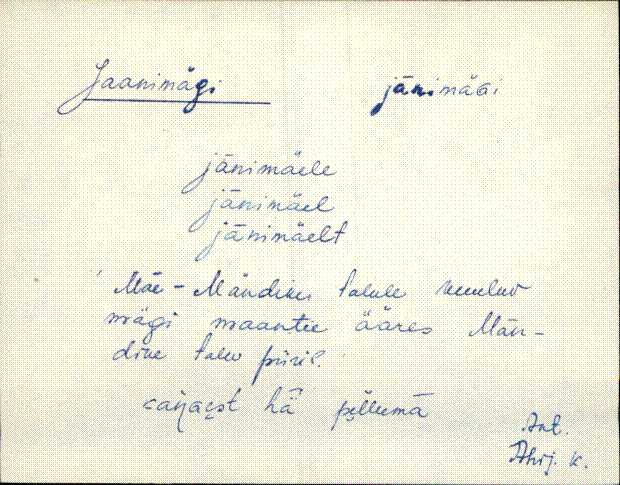 Jaanimägi jānimäGi
jānimäele
jānimäel
jānimäelt
Mäe-Mändiku talule kuuluv
mägi maantee ääres Män-
diku talu piiril.
hǟ pellumā
Ant.
Ahij. K.